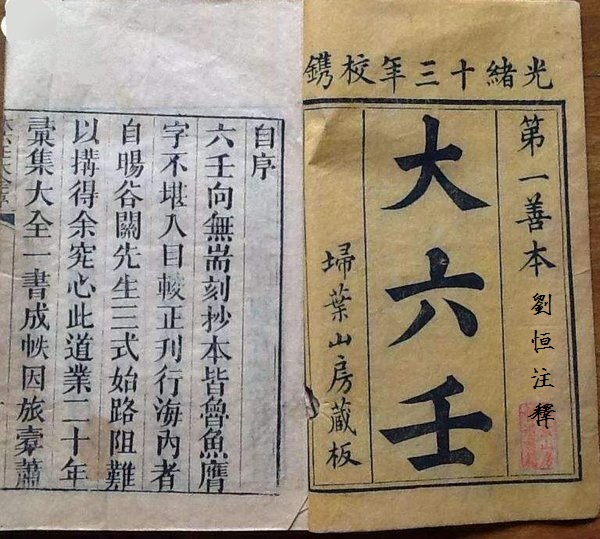 光緒十三年校鐫
第一善本
劉恒注釋
大六壬
埽葉山房藏板
自序
六壬向無耑刻抄本皆魯魚膺
字不堪入目較正刊行海內者
自暘谷關先生三式始路阻難
以搆得余究心此道業二十年
彚集大全一書成帙因旅橐蕭